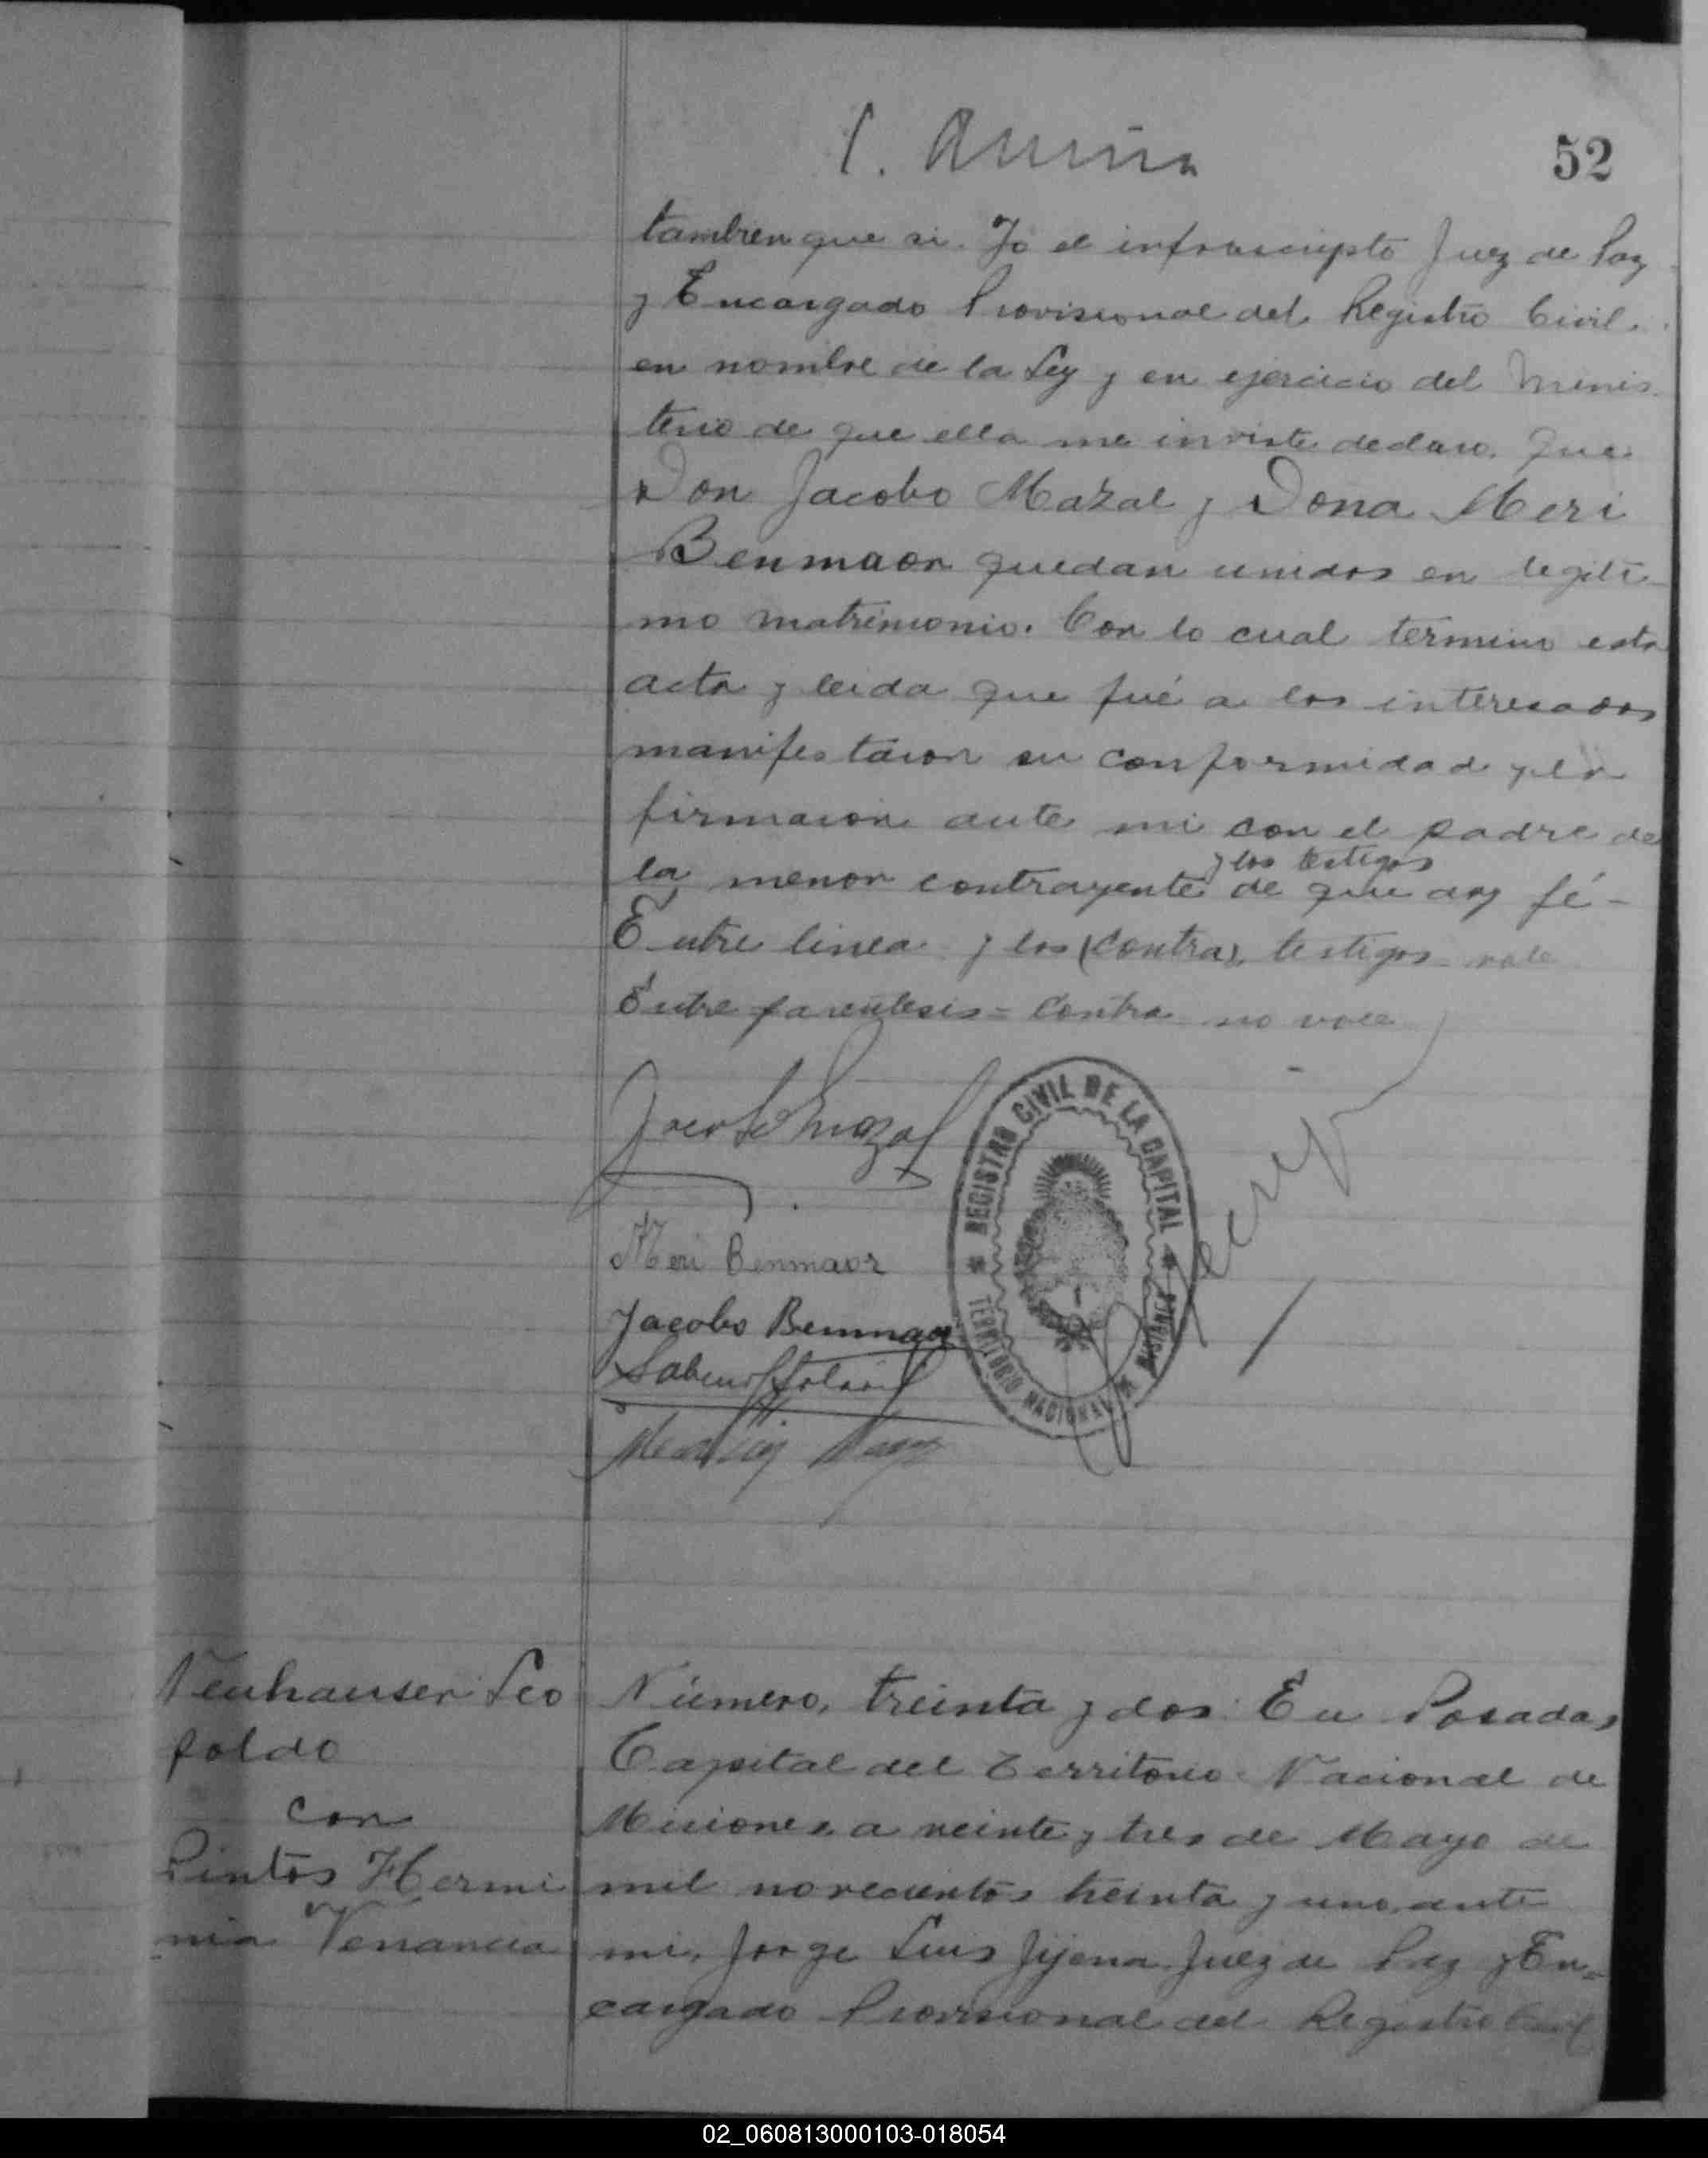 52
tambien que si. Yo el infrascripto Juez de Paz
y Encargado Provisional del Registro Civil.
en nombre de la Ley y en ejercicio del Minis
terio de que ella me inviste declaro. Que
Don Jacobo Mazal y Dona Meri
Benmaor quedan unidos en legiti
mo matrimonio. Con lo cual termino esta
acta y leida que fué a los interesados
manifestaron su conformidad y la
firmaron ante mi con el padre de
y los testigos
la menor contrayente de que doy fé -
Entre linea y los (contra) testigos vale
Entre parentesis = contra no vale
Jacobo Mazal
Meri Benmaor
Jacobo Benmaor
REGISTRO CIVIL DE LA CAPITAL
TERRITORIO NACIONAL DE MISIONES
Neuhauser Leo
poldo
con
Pintos Hermi
nia Venancia
Número, treinta y dos. En Posadas
Capital del Territorio Nacional de
Misiones a veinte y tres de Mayo de
mil novecientos treinta y uno, ante
mi, Jorge Luis Jijena Juez de Paz y En=
cargado Provisional del Registro Civil
02_060813000103-018054